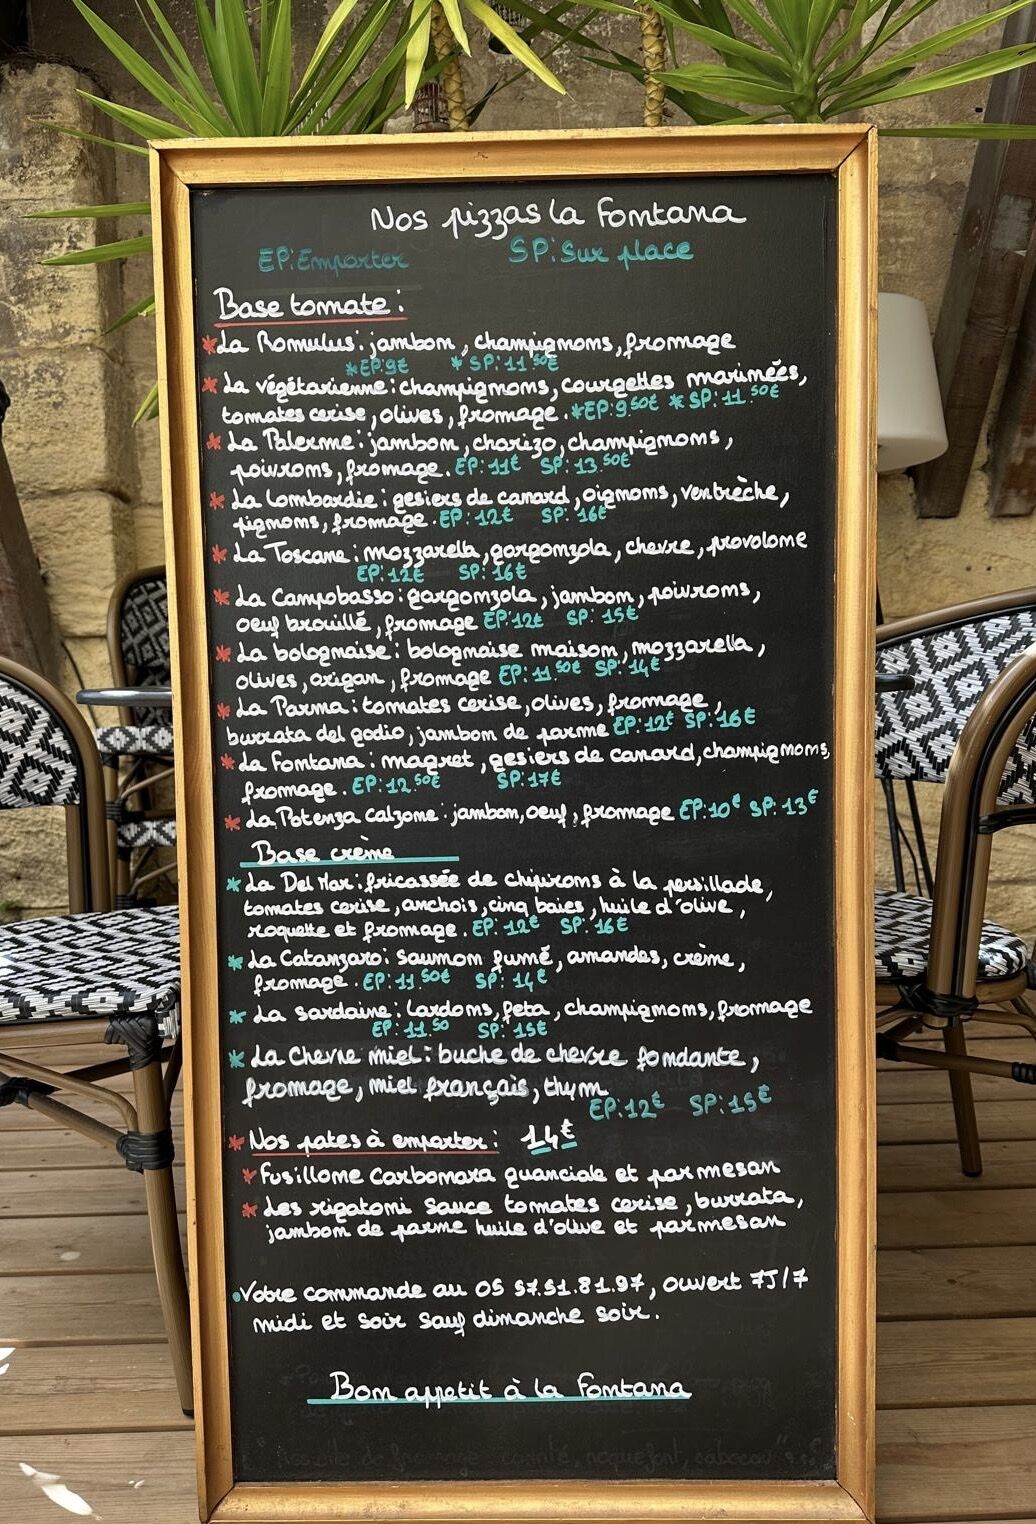 Nos pizzas la Fontana
EP:Emporter SP:Sur place
Base tomate:
*La Romulus: jambon, champignons, fromage
*EP:9€ *SP:11.50€
*La végétarienne: champignons, courgettes marinées,
tomates cerise, olives, fromage. *EP:9.50€ *SP:11.50€
*La Palerme: jambon, chorizo, champignons,
poivrons, fromage. EP:11€ SP:13.50€
*La Lombardie: gesiers de canard, oignons, ventrèche,
pignons, fromage. EP:12€ SP:16€
*La Toscane: mozzarella, gorgonzola, chevre, provolone
EP:12€ SP:16€
*La Campobasso: gorgonzola, jambon, poivrons,
oeuf brouillé, fromage EP:12€ SP:15€
*La bolognaise: bolognaise maison, mozzarella,
olives, origan, fromage EP:11.50€ SP:14€
*La Parma: tomates cerise, olives, fromage,
burrata del godio, jambon de parme EP:12€ SP:16€
*La Fontana: magret, gesiers de canard, champignons,
fromage. EP:12.50€ SP:17€
*La Potenza calzone: jambon, oeuf, fromage EP:10€ SP:13€
Base crème
*La Del Mar: fricassée de chipirons à la persillade,
tomates cerise, anchois, cinq baies, huile d'olive,
roquette et fromage. EP:12€ SP:16€
*La Catanzaro: saumon fumé, amandes, crème,
fromage. EP:11.50€ SP:14€
*La sardaine: lardons, feta, champignons, fromage
EP:11.50 SP:15€
*La Chevre miel: buche de chevre fondante,
fromage, miel français, thym
EP:12€ SP:15€
*Nos pates à emporter: 14€
*Fusillone carbonara guanciale et parmesan
*Les rigatoni sauce tomates cerise, burrata,
jambon de parme huile d'olive et parmesan
•Votre commande au 05 57.51.81.97, ouvert 7J/7
midi et soir sauf dimanche soir.
Bon appetit à la Fontana